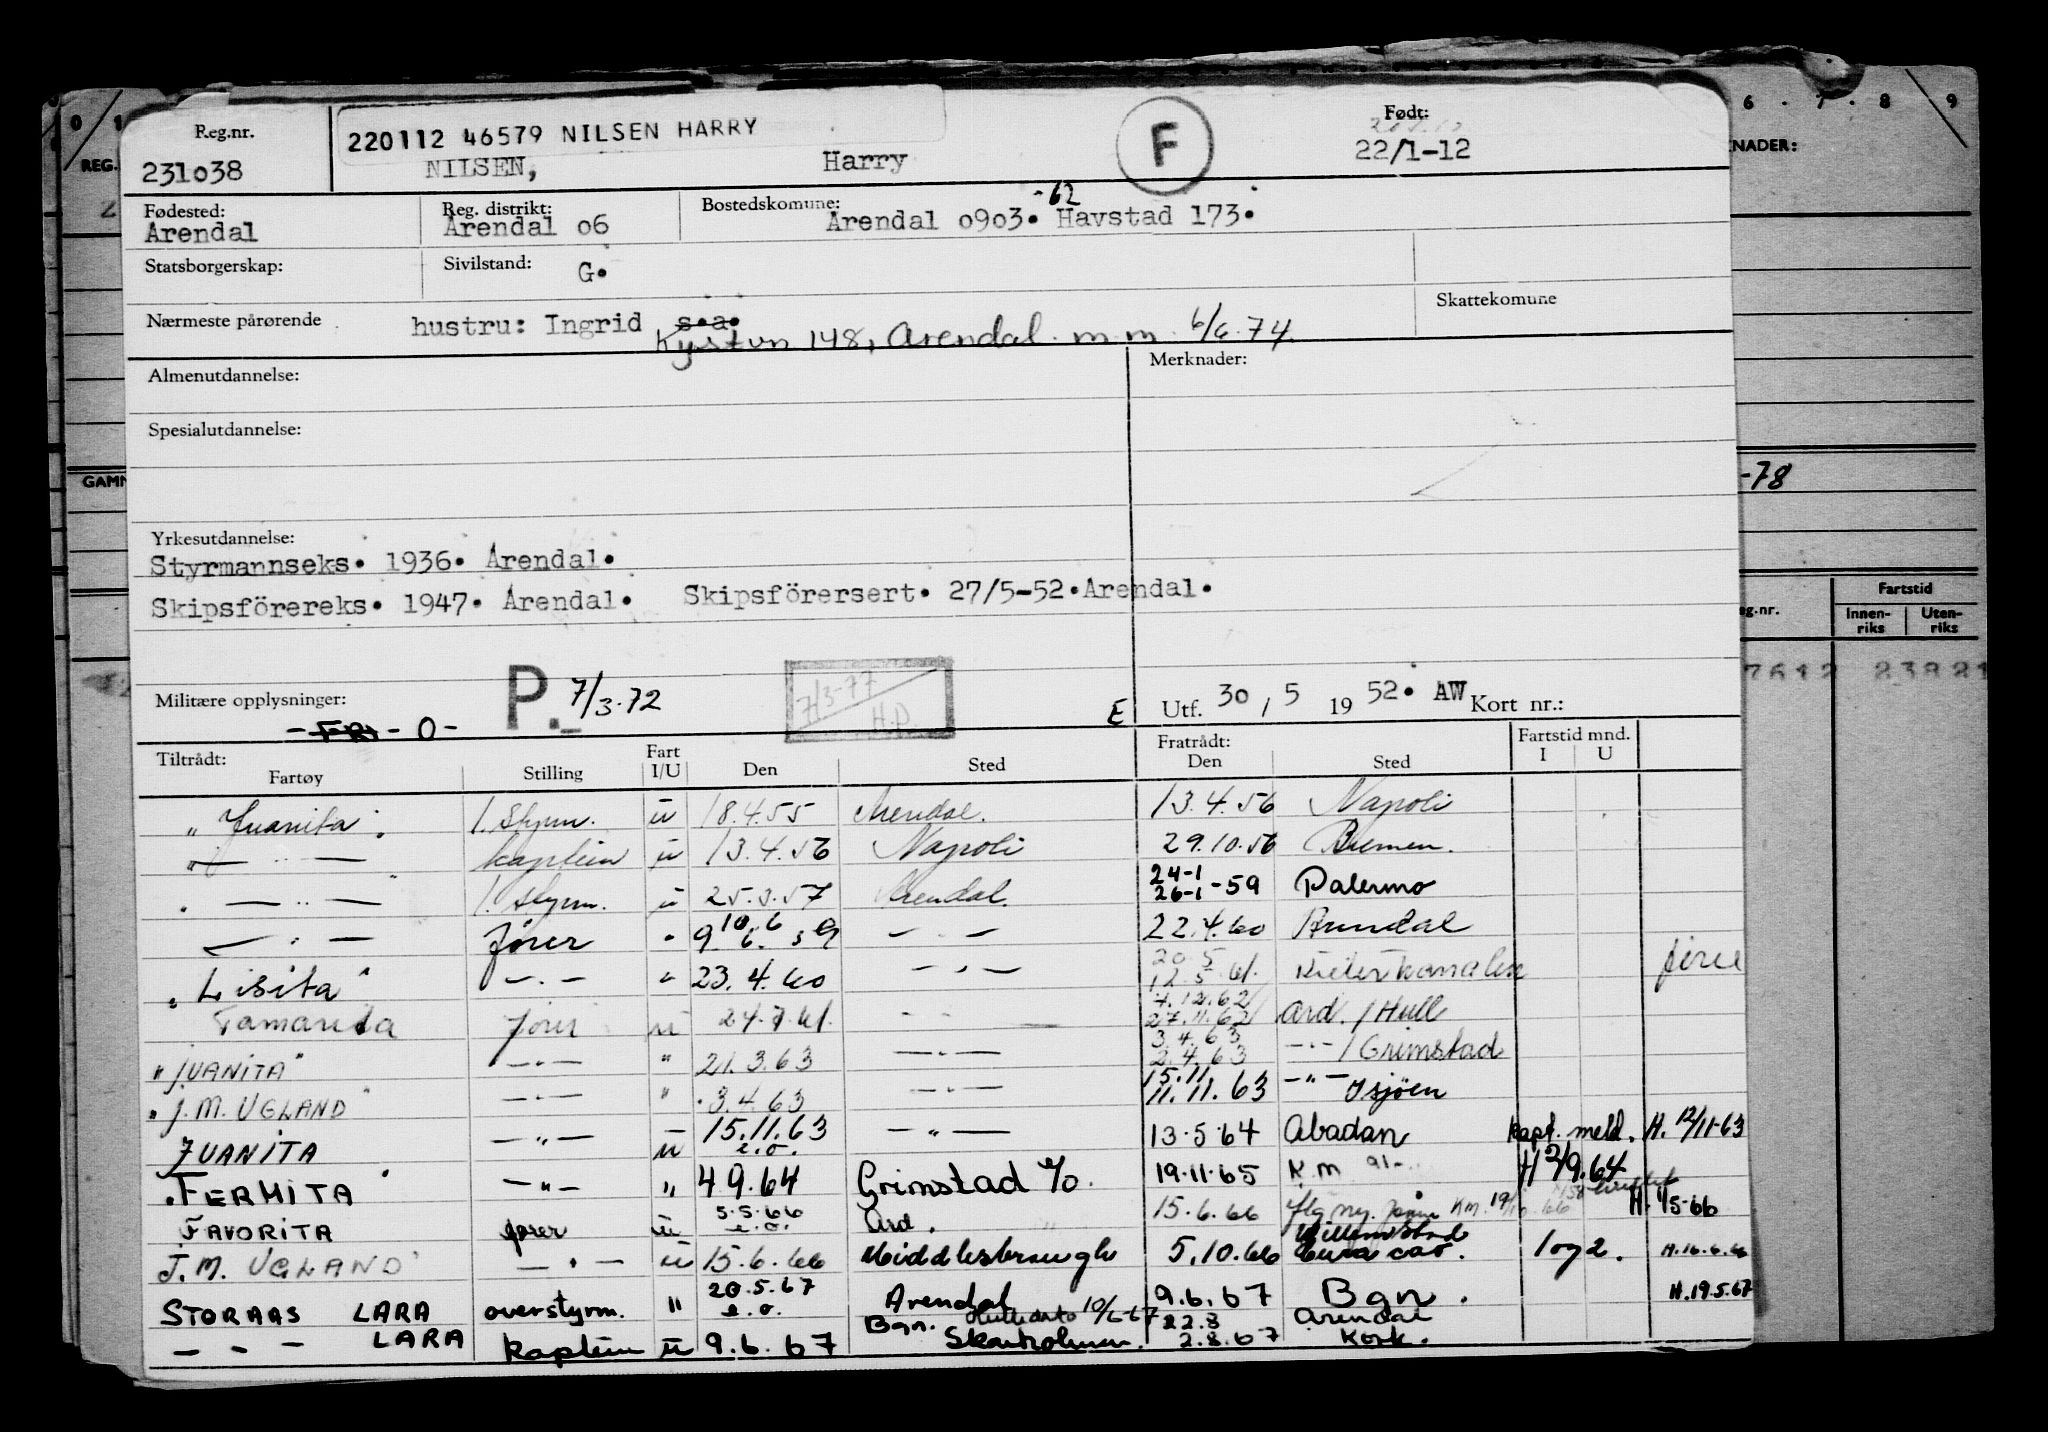 0 1 6 · 7 · 8 9
REG. NADER:
Reg.nr. 220112 46579 NILSEN HARRY F Født:
231038 NILSEN, Harry 22/1-12
Fødested: Reg. distrikt: Bostedskomune: -62
Arendal Arendal 06 Arendal 0903. Havstad 173.
Statsborgerskap: Sivilstand: G.
Skattekomune
Nærmeste pårørende hustru: Ingrid s.a.
Kystvn 148, Arendal m.m. 6/6.74.
Almenutdannelse: Merknader:
Spesialutdannelse:
GAMM -78
Yrkesutdannelse:
Styrmannseks. 1936. Arendal.
Skipsförereks. 1947. Arendal. Skipsförersert. 27/5-52. Arendal.
Fartstid
eg.nr. Innen-riks Uten-riks
7612 23821
Militære opplysninger: P. 7/3.72 7/3-77 H.P. E Utf. 30/5 1952. AW Kort nr.:
-FRI- 0-
Tiltrådt: Fart Fratrådt: Fartstid mnd.
Fartøy Stilling I/U Den Sted Den Sted I U
"Juanita" 1. styrm. u 18.4.55 Arendal. 13.4.56 Napoli
" — " — kaptein u 13.4.56 Napoli 29.10.56 Bremen.
" — " — 1. styrm. u 25.3.57 Arendal. 24-1 26-1-59 Palermo
— " — fører " 9 10.6 6. 59 — " — 22.4.60 Arendal
"Lisita" — " — " 23.4.60 — " — 20.5 12.5.61. Kielerkanalen fører
Tamarita fører u 24.7.61. — " — 4.12.62 27.11.62 Ard. / Hull
"JUANITA" — " — " 21.3.63 — " — 3.4.63 2.4.63 — " — / Grimstad
"J.M. UGLAND" — " — " 3.4.63 — " — 15.11 11.11.63 — " — Isjöen
JUANITA — " — u 15.11.63 e.o. — " — 13.5.64 Abadan kapt. meld. H. 12/11-63
"FERMITA" — " — " 4.9.64 Grimstad e/o. 19.11.65 K.M H 2/9.64
FAVORITA fører u 5.5.66 e.o. Ard. 15.6.66 H. 1/5-66
J.M. UGLAND — " — u 15.6.66 Middlesbraugh 5.10.66 Willemstad Curacao. 1 og 2. H.16.6.66
STORAAS LARA overstyrm. " 20.5.67 e.o. Arendal 9.6.67 Bgn. H.19.5.67
— — — LARA kaptein u 9.6.67 Bgn. 10/6-67 22.8 2.8.67 Arendal Kork.